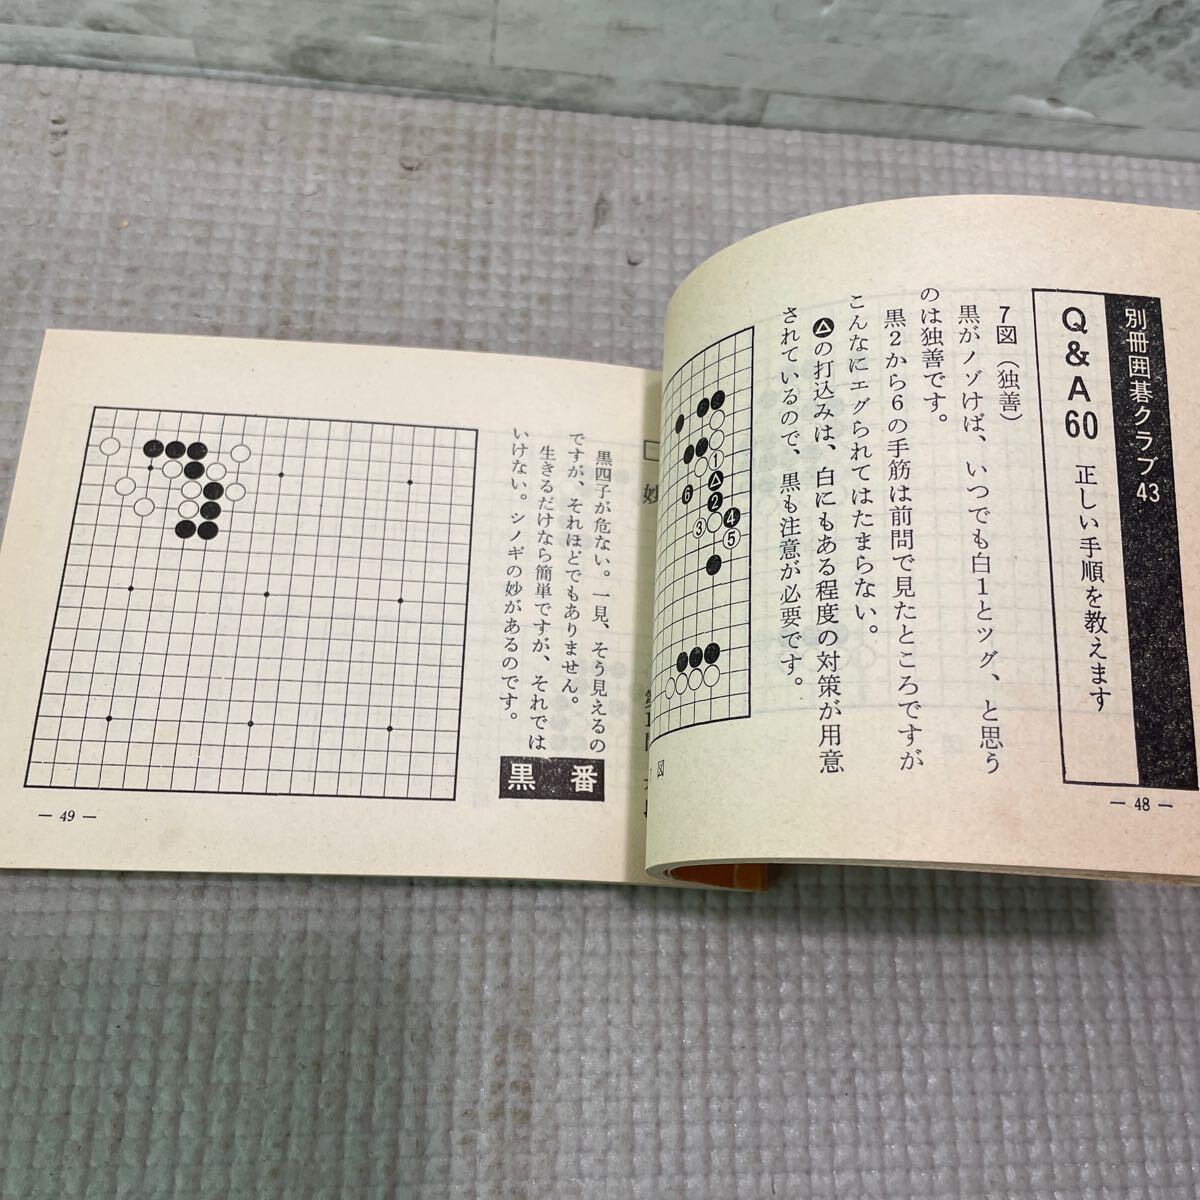 別冊囲碁クラブ43
Q&A60 正しい手順を教えます
7図(独善)
黒がノゾけば、いつでも白1とツグ、と思う
のは独善です。
黒2から6の手筋は前問で見たところですが
こんなにエグられてはたまらない。
▲の打込みは、白にもある程度の対策が用意
されているので、黒も注意が必要です。
1
2
4
6
3
5
図
— 48 —
妙
黒四子が危ない。一見、そう見えるの
ですが、それほどでもありません。
生きるだけなら簡単ですが、それでは
いけない。シノギの妙があるのです。
黒番
— 49 —